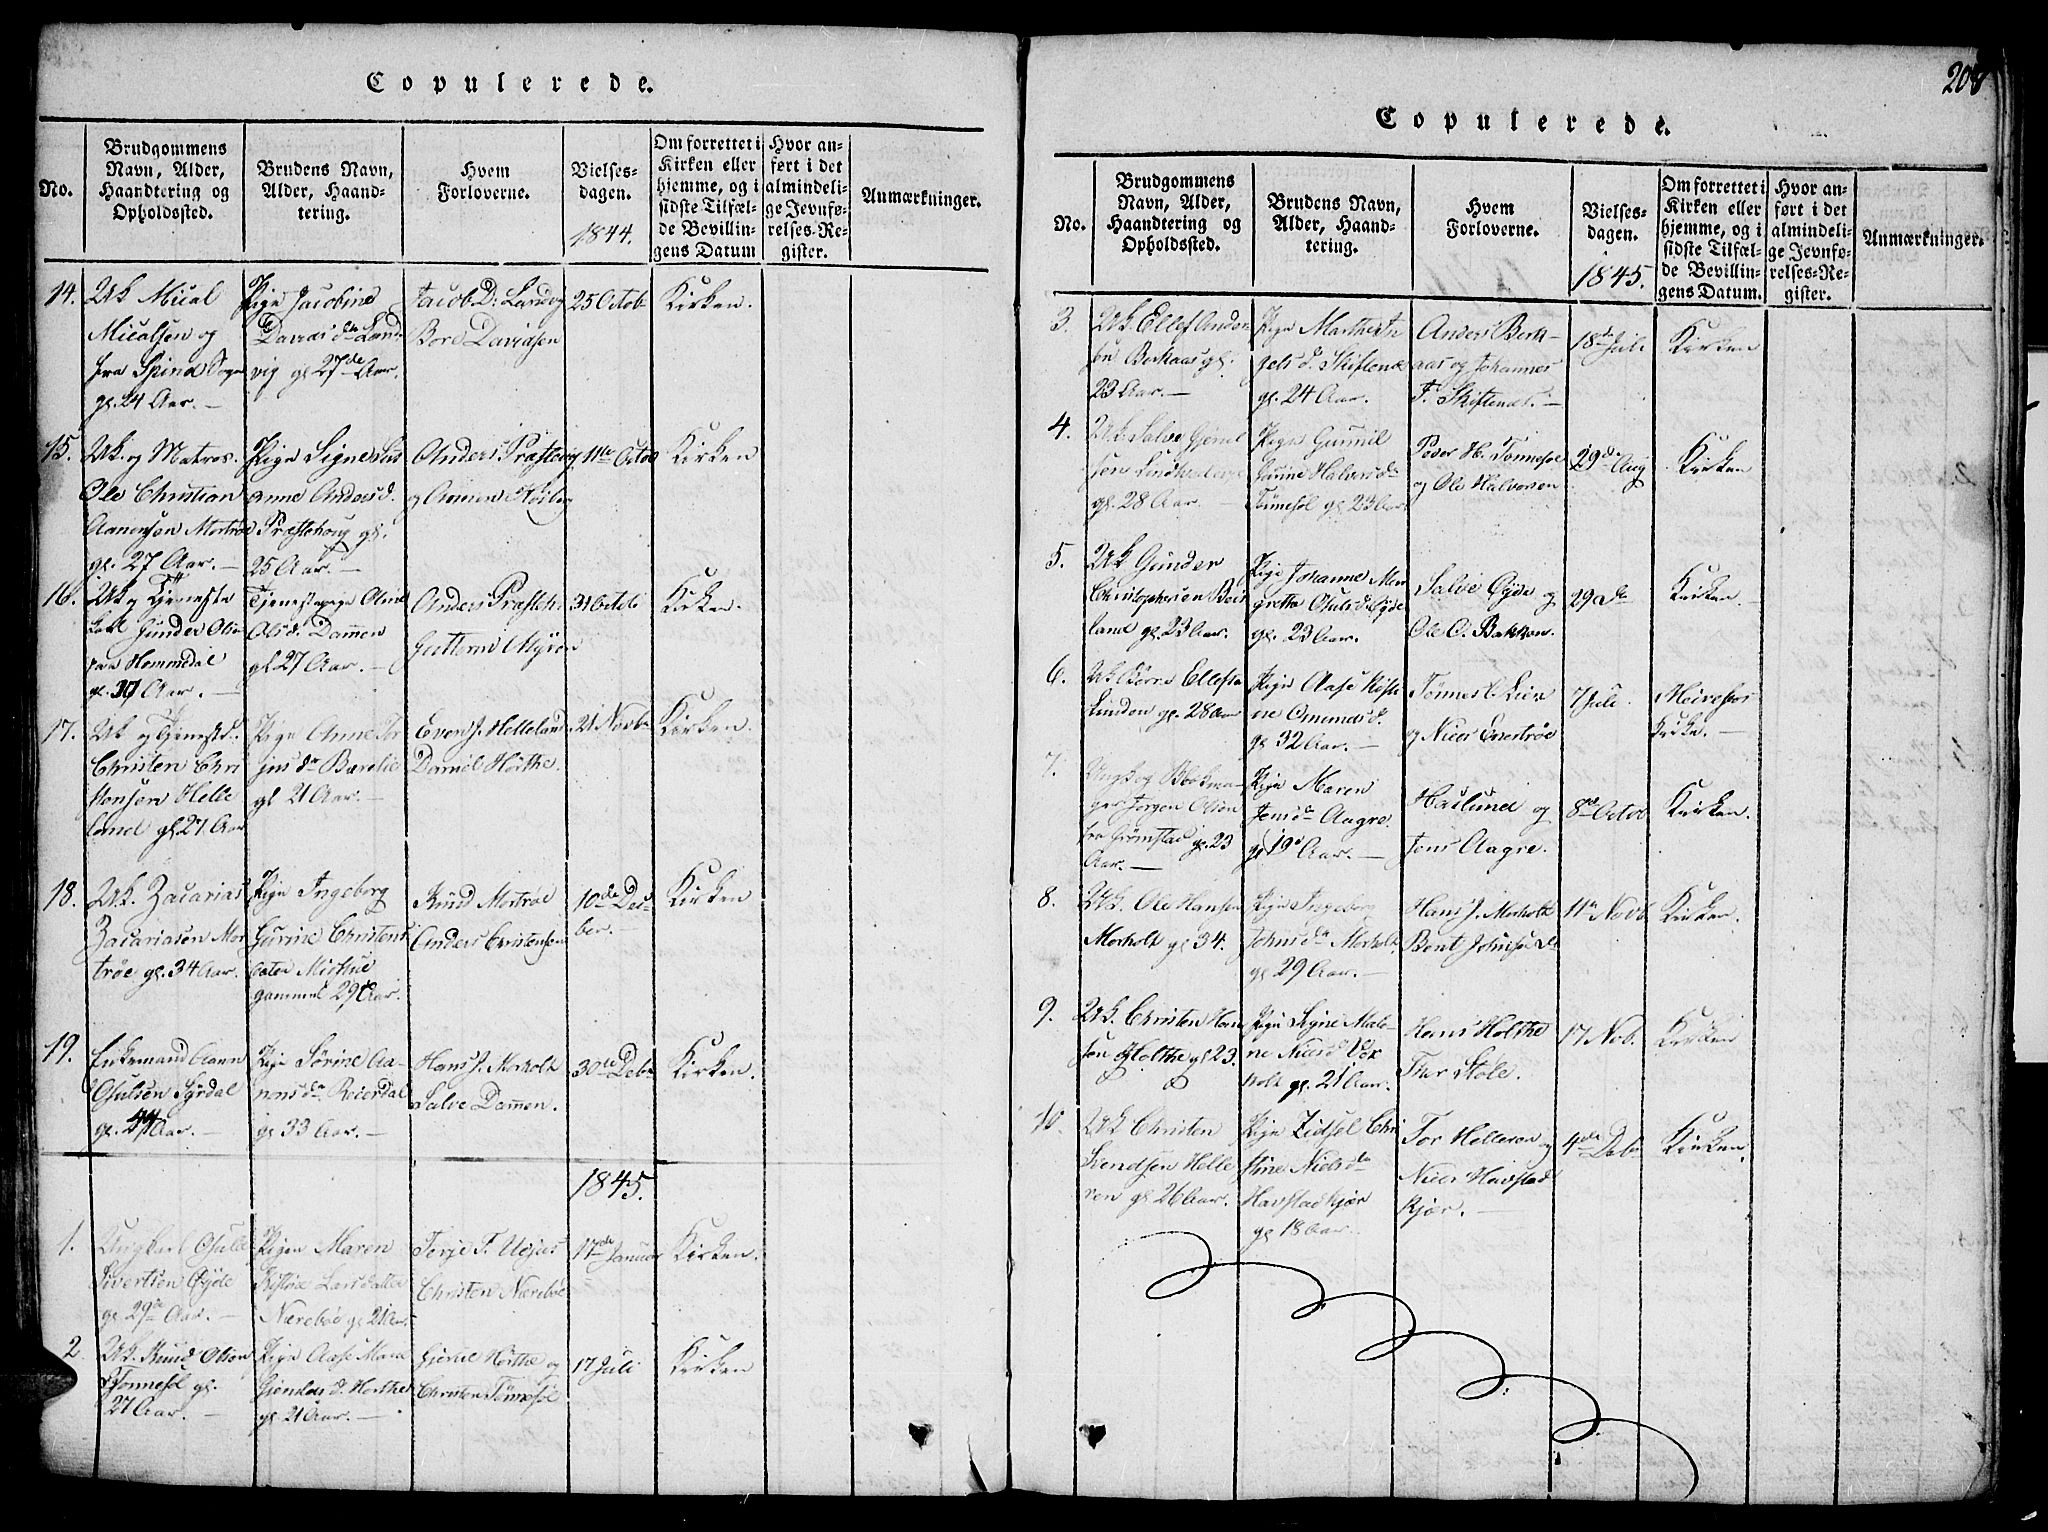 Copulerede.
No.
Brudgommens Navn, Alder, Haandtering og Opholdssted.
Brudens Navn, Alder, Haandtering.
Hvem Forloverne.
Vielsesdagen.
1844.
Om forrettet i Kirken eller hjemme, og i sidste Tilfælde Bevillingens Datum
Hvor anført i det almindelige Jevnførelses-Register.
Anmærkninger.
14.
Uk Mical
Micalsen og
fra Spind Sogn
gl. 24 Aar. —
Pige Jacobine
Davids de Land-
vig gl 27de Aar.
Jacob D. Landvig
Bore Davidsen
25 Octob
Kirken.
15.
Uk. og Matros.
Ole Christian
Aanensen Mortrøe
gl. 27 Aar. —
Pige Signe
anne Anders d.
Præstehoug gl.
25 Aar. —
Anders Præstoug
11te Octob
Kirken
16.
Uk og Tjeneste
Karl Gunder Olsen
Hommedal
Aar. —
Tjenestepige
Ols d. Dammen
gl 27 Aar. —
Anders Præsteh.
31 Octob
Kirken.
17.
Uk og Tjenestd.
Christen Chri
stensen Helle
land gl 27 Aar
Pige Anne Ter
jus dr
gl 21 Aar. —
Even J. Helleland
Daniel Hørthe.
21 Novbr
Kirken.
18.
Uk. Zacarias
Zacariasen Mor
trøe gl. 34 Aar.
Pige Ingeborg
Gurine Christens
dater
gammel 29 Aar.
Knud Mortrøe
Anders Christensen
10de Dec-
ber. —
Kirken
19.
Enkemand Aann
Osulsen Syrdal
Aar. —
Pige Sørine Aa-
nons da Reierdal
gl 33 Aar. —
Hans J. Morholt
Salve Dammen.
30te Debr
Kirken.
1845.
1.
Ungkarl Osuld
Sivertsen Øyde
gl. 29de Aar. —
Pigen Maren
Larsdatter
Nærebøe gl 21 Aar.
Terje T.
Christen Nærebøe
11de Januar
Kirken.
2
Uk. Knud Olsen
Tønnesøl gl.
27 Aar. —
Pige Aase Marie
Hørthe
gl 21 Aar. —
Gjerul Hørthe og
Christen Tønnesøl
17 Juli
Kirken
208
Copulerede.
No.
Brudgommens Navn, Alder, Haandtering og Opholdssted.
Brudens Navn, Alder, Haandtering.
Hvem Forloverne.
Vielsesdagen.
1845.
Om forrettet i Kirken eller hjemme, og i sidste Tilfælde Bevillingens Datum.
Hvor anført i det almindelige Jevnførelses-Register.
Anmærkninger.
3.
Uk. Ellef Ander
sen Berkaas gl.
23 Aar. —
Pige Marthe
d. Skiftenæs
gl. 24 Aar.
Anders Berk-
aas og Johannes
T. Skiftenæs. —
18de Juli
Kirken
4.
Uk. Salve Gjerul
sen
gl. 28 Aar. —
Pige Gunnil
Halvors da
Tønnesøl gl 23 Aar
Peder H. Tønnesøl
og Ole Halvorsen
29de Aug
Kirken
5.
Uk Gunder
Christophersen Beis
land gl 23 Aar.
Pige Johanne Mar
gretha Osuls d. Øyde
gl. 23 Aar.
Salve Øyde og
Ole O. Bakken.
29 de
Kirken.
6.
Uk Børre Ellefsen
Lunden gl. 28 Aar
Pige Aase Kiste
ne
gl 32 Aar. —
Tønnes L. Lien
og Niels Enestrøe
7 Juli.
Kirke. —
7.
Ungk og
Jørgen Olsen
fra Grømstad gl. 23
Aar. —
Pige Maren
Jens da Aagre.
gl 19 Aar. —
Haslund og
Jens Aagre.
8de Octob
Kirken.
8.
Uk. Ole Hansen
Morholt gl 34.
Pige Ingeborg
Johns da Morholt
gl 29 Aar. —
Hans J. Morholt
Bent Johnsen
11te Novb.
Kirken.
9.
Uk. Christen Han
sen Holthe gl 23.
Pige Signe Male-
ne Niels d Vox
holt gl. 21 Aar.
Hans Holthe
Ther Støle.
17 Nov.
Kirken
10.
Uk Christen
Svendsen Helle
ren gl 26 Aar.
Pige Zidsel Chri
stine Niels da
Havstadkjær
gl 18 Aar.
Tor Helleren og
Niels Havstad
kjær. —
4de Debr
Kirken.